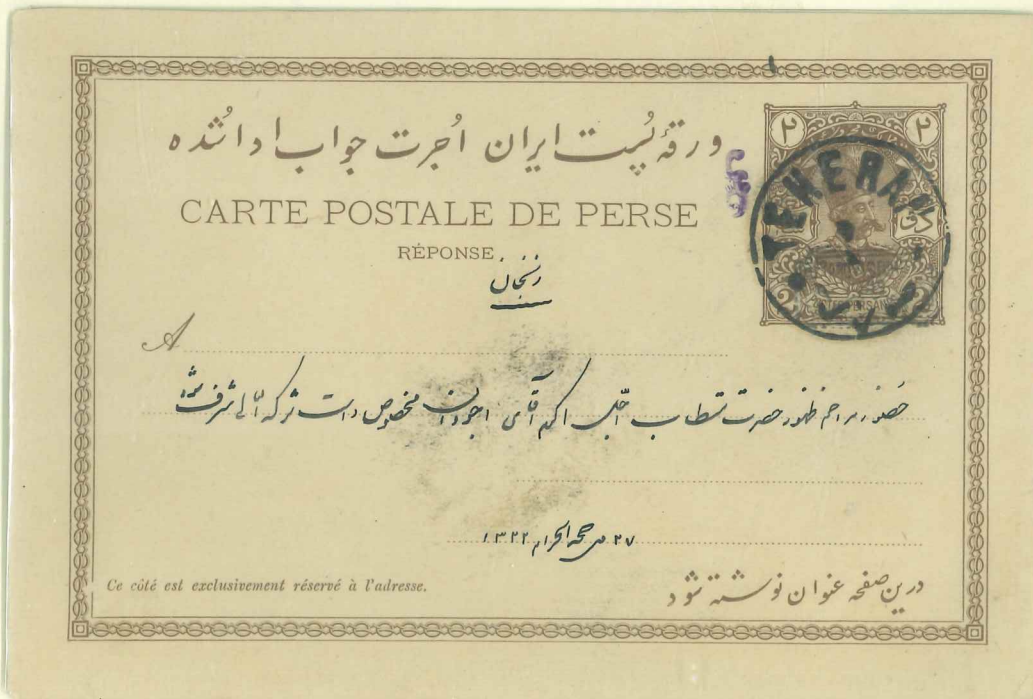 ورقهٔ پُست ایران اُجرت جواب ادا شده
CARTE POSTALE DE PERSE
RÉPONSE
۲ ۲
TEHERAN
زنجان
A
حضور مراحم ظهور حضرت مستطاب اجل اکرم آقای آجودان مخصوص دامت شوکته العالی مشرف شود
۲۷ ذی حجة الحرام ۱۳۲۲
Ce côté est exclusivement réservé à l'adresse.
درین صفحه عنوان نوشته شود